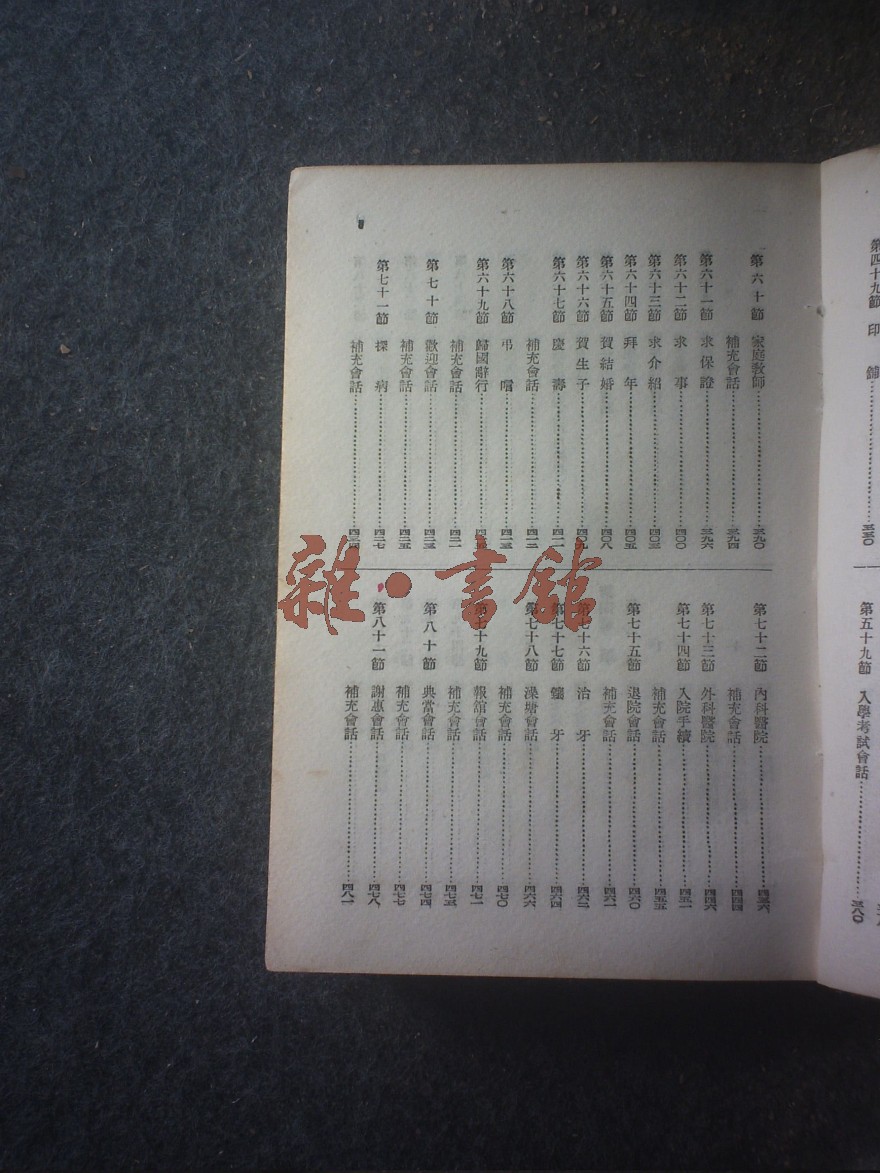 第四十九節 印 ……三三〇
第五十九節 入學考試會話……三八〇
第六十節 家庭敎師……三九〇
補充會話……三九四
第六十一節 求保證……三九六
第六十二節 求事……四〇〇
第六十三節 求介紹……四〇三
第六十四節 拜年……四〇五
第六十五節 賀結婚……四〇八
第六十六節 賀生子……四〇九
第六十七節 慶壽……四一一
補充會話……四一二
第六十八節 弔唁……四一三
第六十九節 歸國辭行……
補充會話……四二一
第七十節 歡迎會話……四二三
補充會話……四二五
第七十一節 探病……四二七
補充會話……
第七十二節 內科醫院……四三六
補充會話……四四四
第七十三節 外科醫院……四四六
第七十四節 入院手續……四五一
補充會話……四五五
第七十五節 退院會話……四六〇
補充會話……四六一
第七十六節 治牙……四六二
第七十七節 鑲牙……四六四
第七十八節 澡塘會話……四六六
補充會話……四七〇
第七十九節 報館會話……四七一
補充會話……四七三
第八十節 典當會話……四七四
補充會話……四七七
第八十一節 謝惠會話……四七八
補充會話……四八一
雜·書館